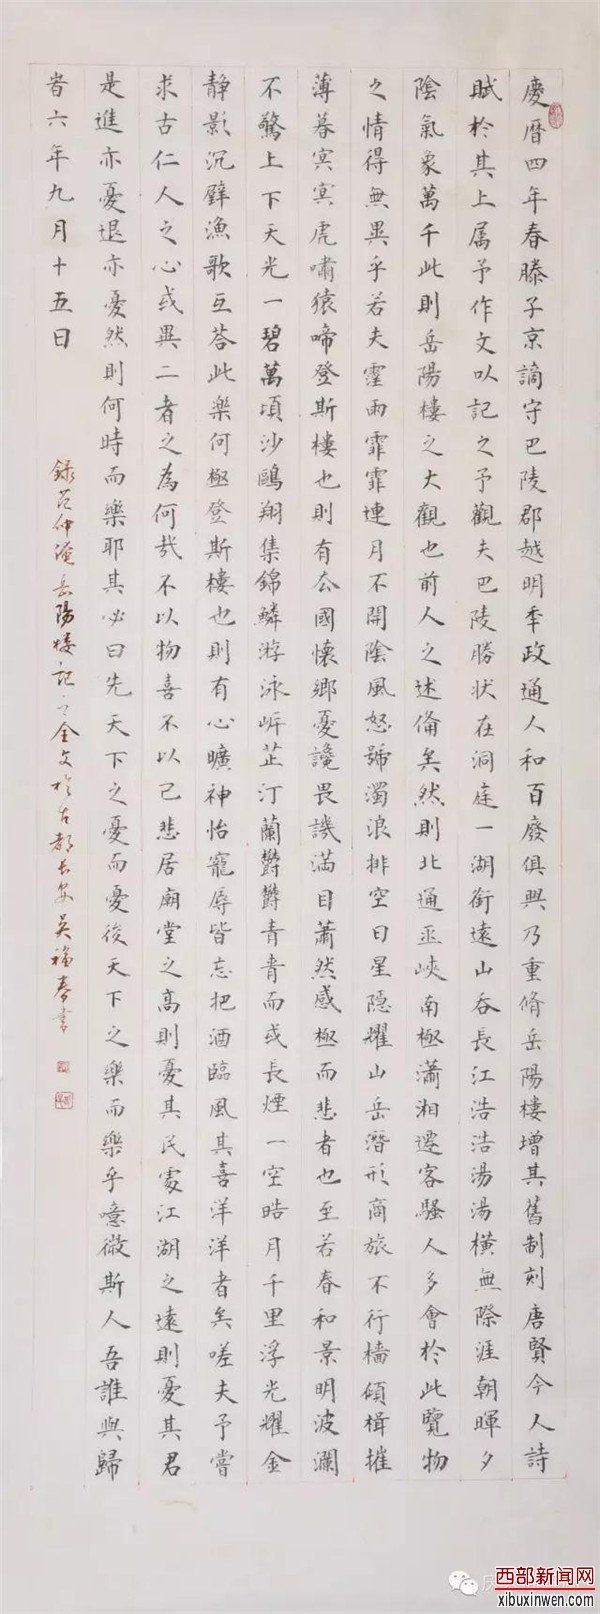 慶曆四年春滕子京謫守巴陵郡越明季政通人和百廢俱興乃重脩岳陽樓增其舊制刻唐賢今人詩
賦於其上属予作文以記之予觀夫巴陵勝状在洞庭一湖銜遠山吞長江浩浩湯湯橫無際涯朝暉夕
陰氣象萬千此則岳陽樓之大觀也前人之述俻矣然則北通巫峽南極瀟湘遷客騷人多會於此覽物
之情得無異乎若夫霪雨霏霏連月不開陰風怒號濁浪排空日星隐耀山岳潛形商旅不行檣傾楫摧
薄暮冥冥虎嘯猿啼登斯樓也則有去國懷鄉憂讒畏譏滿目蕭然感極而悲者也至若春和景明波瀾
不驚上下天光一碧萬頃沙鷗翔集錦鱗游泳岸芷汀蘭欝欝青青而或長煙一空皓月千里浮光耀金
静影沉璧漁歌互荅此樂何極登斯樓也則有心曠神怡寵辱皆忘把酒臨風其喜洋洋者矣嗟夫予嘗
求古仁人之心或異二者之為何哉不以物喜不以己悲居廟堂之高則憂其民處江湖之遠則憂其君
是進亦憂退亦憂然則何時而樂耶其必曰先天下之憂而憂後天下之樂而樂乎噫微斯人吾誰與歸
昔六年九月十五日
錄范仲淹岳陽樓記之全文於古都長安吴福春書
西部新闻网
xibuxinwen.com